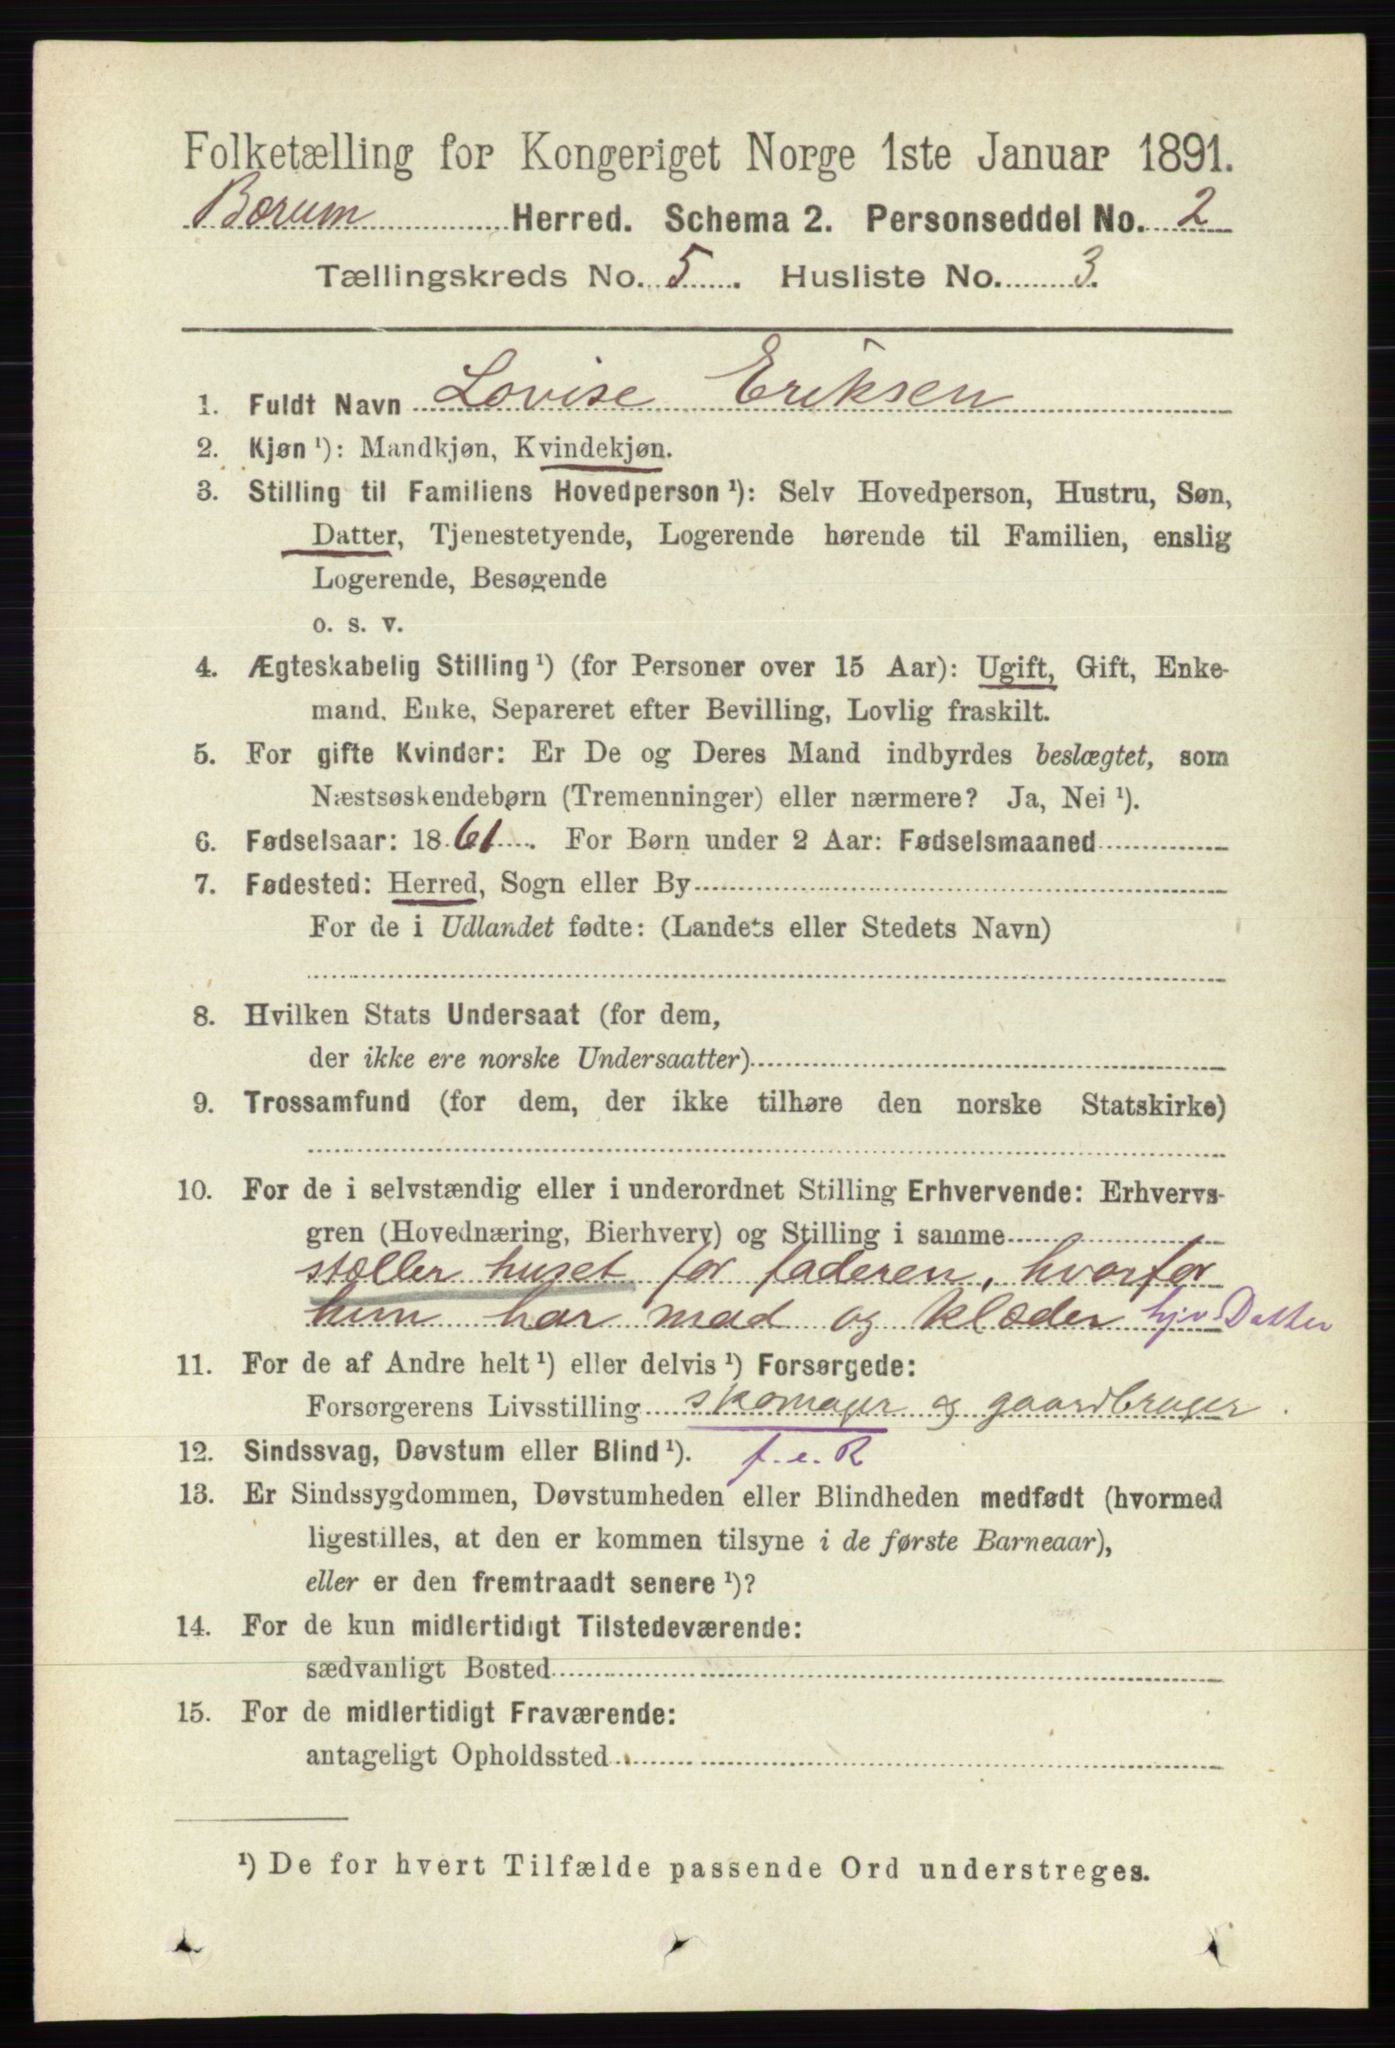 Folketælling for Kongeriget Norge 1ste Januar 1891.
Bærum Herred. Schema 2. Personseddel No. 2
Tællingskreds No. 5. Husliste No. 3.
1. Fuldt Navn Lovise Eriksen
2. Kjøn ¹): Mandkjøn, Kvindekjøn.
3. Stilling til Familiens Hovedperson ¹): Selv Hovedperson, Hustru, Søn,
Datter, Tjenestetyende, Logerende hørende til Familien, enslig
Logerende, Besøgende
o. s. v.
4. Ægteskabelig Stilling ¹) (for Personer over 15 Aar): Ugift, Gift, Enke-
mand, Enke, Separeret efter Bevilling, Lovlig fraskilt.
5. For gifte Kvinder: Er De og Deres Mand indbyrdes beslægtet, som
Næstsøskendebørn (Tremenninger) eller nærmere? Ja, Nei ¹).
6. Fødselsaar: 1861. For Børn under 2 Aar: Fødselsmaaned
7. Fødested: Herred, Sogn eller By
For de i Udlandet fødte: (Landets eller Stedets Navn)
8. Hvilken Stats Undersaat (for dem,
der ikke ere norske Undersaatter)
9. Trossamfund (for dem, der ikke tilhøre den norske Statskirke)
10. For de i selvstændig eller i underordnet Stilling Erhvervende: Erhvervs-
gren (Hovednæring, Bierhverv) og Stilling i samme
stæller huset for faderen, hvorfor
hun har mad og klæder hjv. Datter
11. For de af Andre helt ¹) eller delvis ¹) Forsørgede:
Forsørgerens Livsstilling skomager og gaardbruger.
12. Sindssvag, Døvstum eller Blind ¹). f. e. R
13. Er Sindssygdommen, Døvstumheden eller Blindheden medfødt (hvormed
ligestilles, at den er kommen tilsyne i de første Barneaar),
eller er den fremtraadt senere ¹)?
14. For de kun midlertidigt Tilstedeværende:
sædvanligt Bosted
15. For de midlertidigt Fraværende:
antageligt Opholdssted
¹) De for hvert Tilfælde passende Ord understreges.